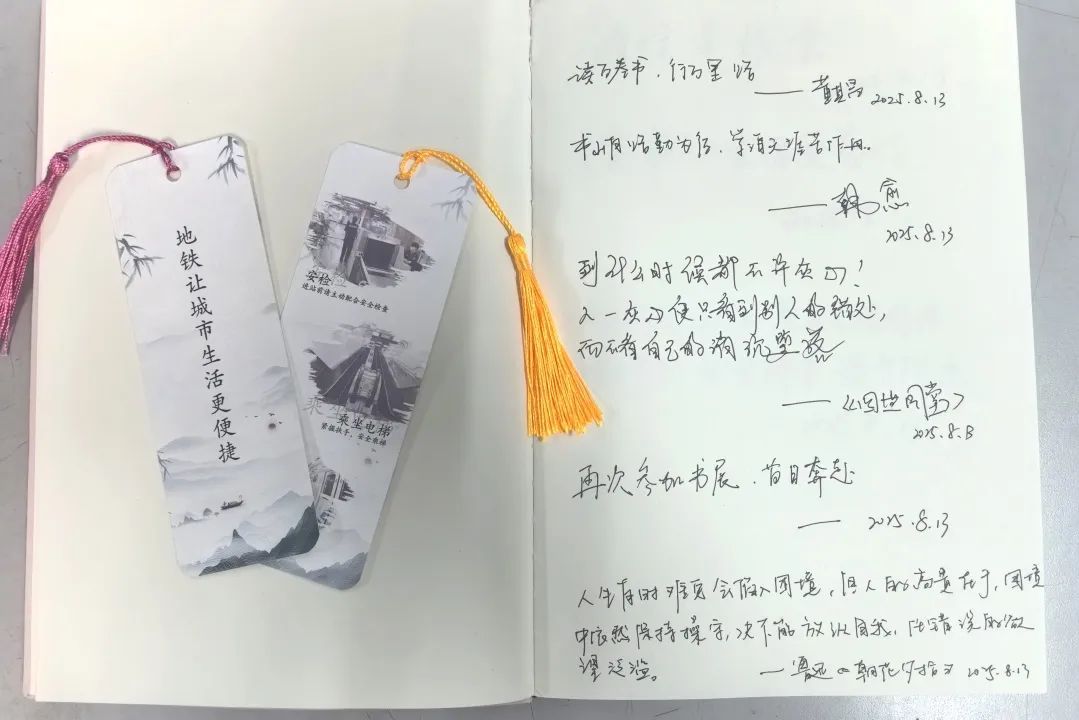 地铁让城市生活更便捷
安检
进站前请主动配合安全检查
乘坐电梯
紧握扶手，安全乘梯
读万卷书，行万里路
—— 董其昌 2025.8.13
书山有路勤为径，学海无涯苦作舟。
—— 韩愈
2025.8.13
到什么时候都不许灰心！
人一灰心便只看到别人的错处，
而不看自己的消沉堕落
——《四世同堂》
2025.8.13
再次参加书展，盲目奔赴
— 2025.8.13
人生有时难免会陷入困境，但人的高贵在于，困境
中依然保持操守，决不能放纵自我，任错误的欲
望泛滥。
—鲁迅《朝花夕拾》2025.8.13